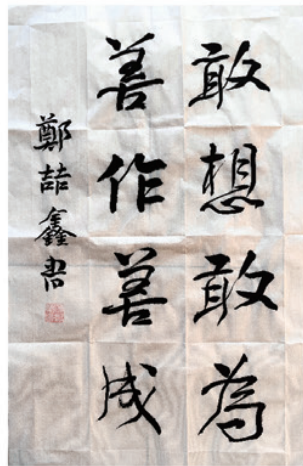 敢想敢為
善作善成
鄭喆鑫書